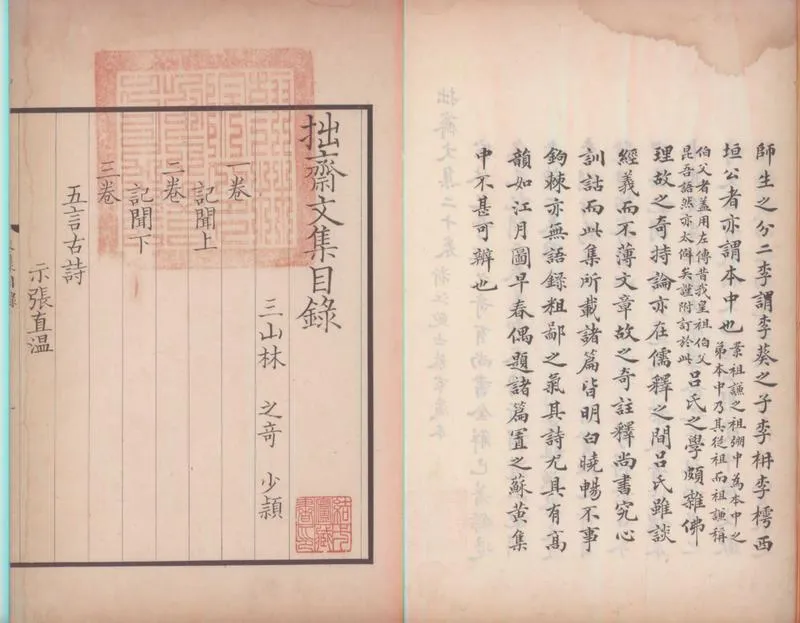 師生之分二李謂李葵之子李枏李樗西
垣公者亦謂本中也案祖謙之祖弸中為本中之弟本中乃其從祖而祖謙稱
伯父者蓋用左傳昔我皇祖伯父昆吾語然亦太僻矣謹附訂於此吕氏之學頗雜佛
理故之奇持論亦在儒釋之間吕氏雖談
經義而不薄文章故之奇註釋尚書究心
訓詁而此集所載諸篇皆明白曉暢不事
鉤棘亦無語錄粗鄙之氣其詩尤具有高
韻如江月圖早春偶題諸篇置之蘇黃集
中不甚可辨也
拙齋文集目錄
三山林 之竒 少頴
一卷
記聞上
二卷
記聞下
三卷
五言古詩
示張直温